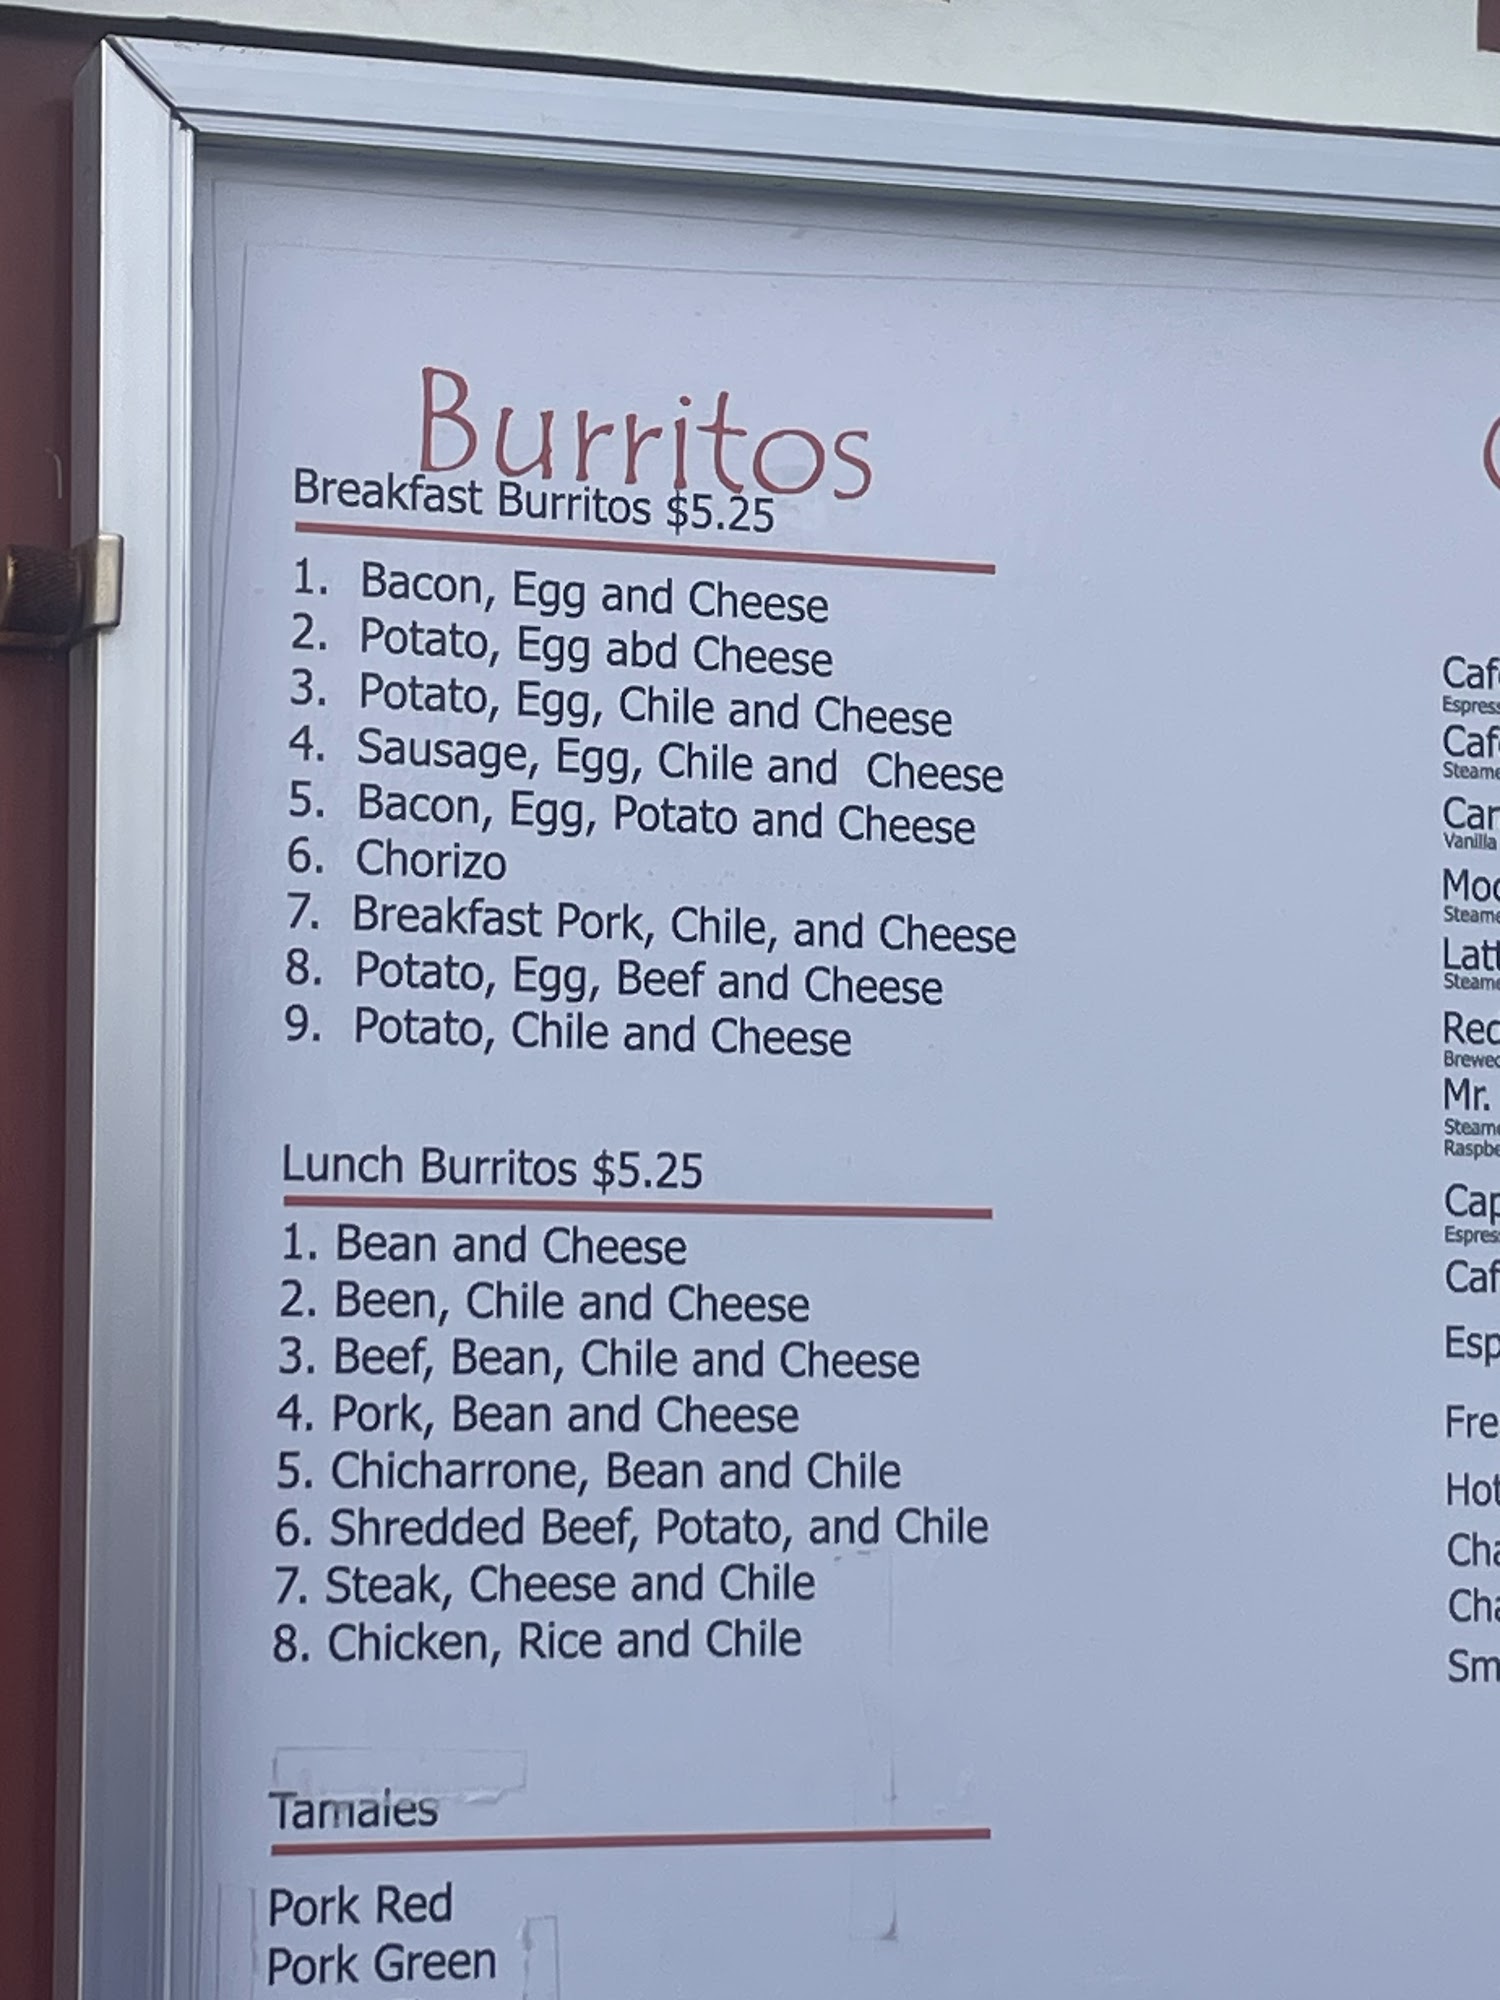 Burritos
Breakfast Burritos $5.25
1. Bacon, Egg and Cheese
2. Potato, Egg abd Cheese
3. Potato, Egg, Chile and Cheese
4. Sausage, Egg, Chile and Cheese
5. Bacon, Egg, Potato and Cheese
6. Chorizo
7. Breakfast Pork, Chile, and Cheese
8. Potato, Egg, Beef and Cheese
9. Potato, Chile and Cheese
Lunch Burritos $5.25
1. Bean and Cheese
2. Been, Chile and Cheese
3. Beef, Bean, Chile and Cheese
4. Pork, Bean and Cheese
5. Chicharrone, Bean and Chile
6. Shredded Beef, Potato, and Chile
7. Steak, Cheese and Chile
8. Chicken, Rice and Chile
Tamales
Pork Red
Pork Green
Vanilla
Mr.